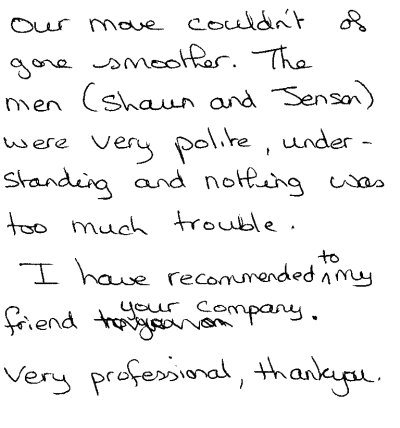 our move couldn't of
gone smoother. The
men (Shaun and Jenson)
were very polite, under-
standing and nothing was
too much trouble.
I have recommended to my
friend your company.
Very professional, thankyou.